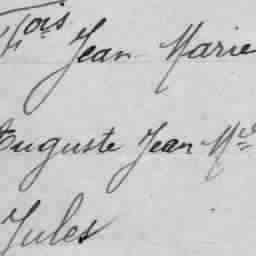 Fçois Jean Marie
Auguste Jean Mie
Jules